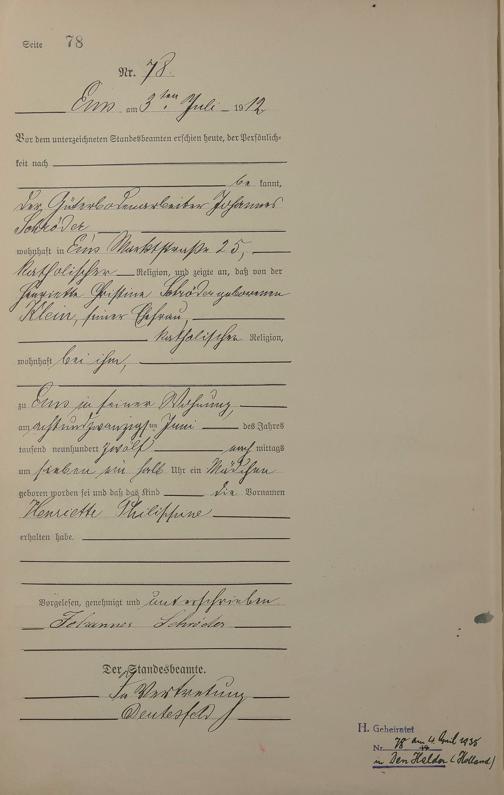 Seite 78
Nr. 78.
Ems am 3ten Juli 1912
Vor dem unterzeichneten Standesbeamten erschien heute, der Persönlich-
keit nach
be kannt,
der Güterbodenarbeiter Johannes
Schröder
wohnhaft in Ems Marktstraße 25,
katholischer Religion, und zeigte an, daß von der
Henriette Christine Schröder geborenen
Klein, seiner Ehefrau,
katholischer Religion,
wohnhaft bei ihm,
zu Ems in seiner Wohnung,
am achtundzwanzigsten Juni des Jahres
tausend neunhundert zwölf nach mittags
um sieben ein halb Uhr ein Mädchen
geboren worden sei und daß das Kind die Vornamen
Henriette Philippine
erhalten habe.
Vorgelesen, genehmigt und unterschrieben
Johannes Schröder
Der Standesbeamte.
In Vertretung
H. Geheiratet
Nr. 78 am 4. April 1935
in Den Helder (Holland)